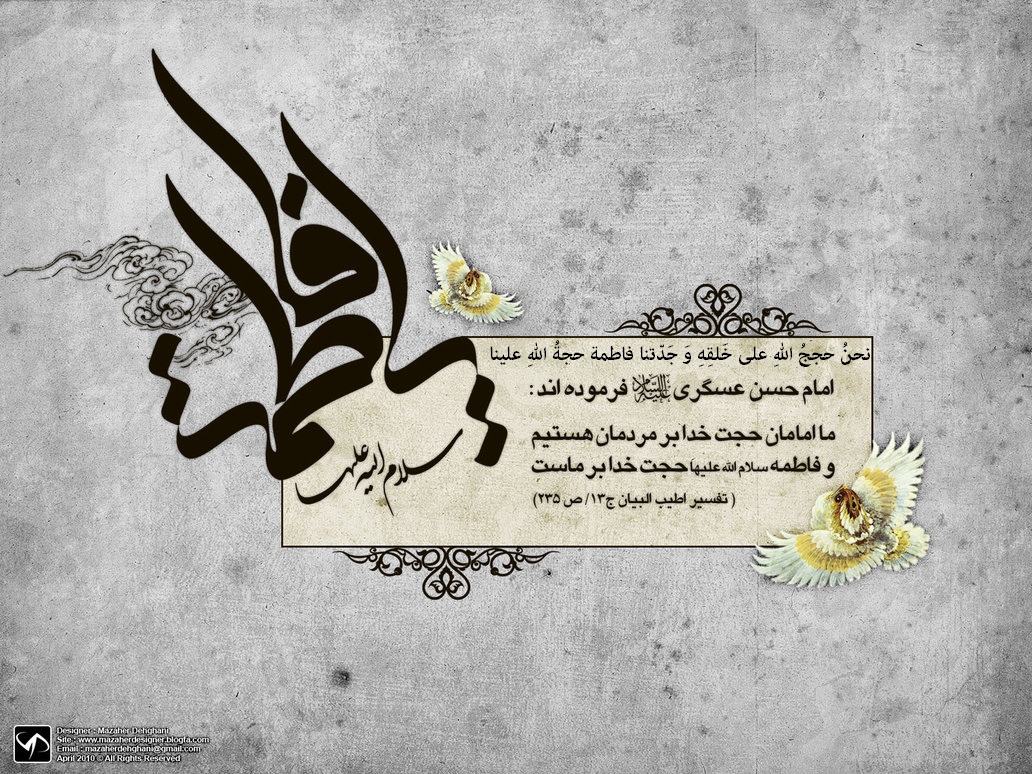 یا فاطمة
سلام الله علیها
نحنُ حججُ اللهِ علی خَلقِهِ وَ جَدّتنا فاطمة حجةُ اللهِ علینا
امام حسن عسگری علیه السلام فرموده اند :
ما امامان حجت خدا بر مردمان هستیم
و فاطمه سلام الله علیها حجت خدا بر ماست
( تفسیر اطیب البیان ج۱۳/ ص ۲۳۵)
Designer : Mazaher Dehghani
Site : www.mazaherdesigner.blogfa.com
Email : mazaherdehghani@gmail.com
April 2010 © All Rights Reserved